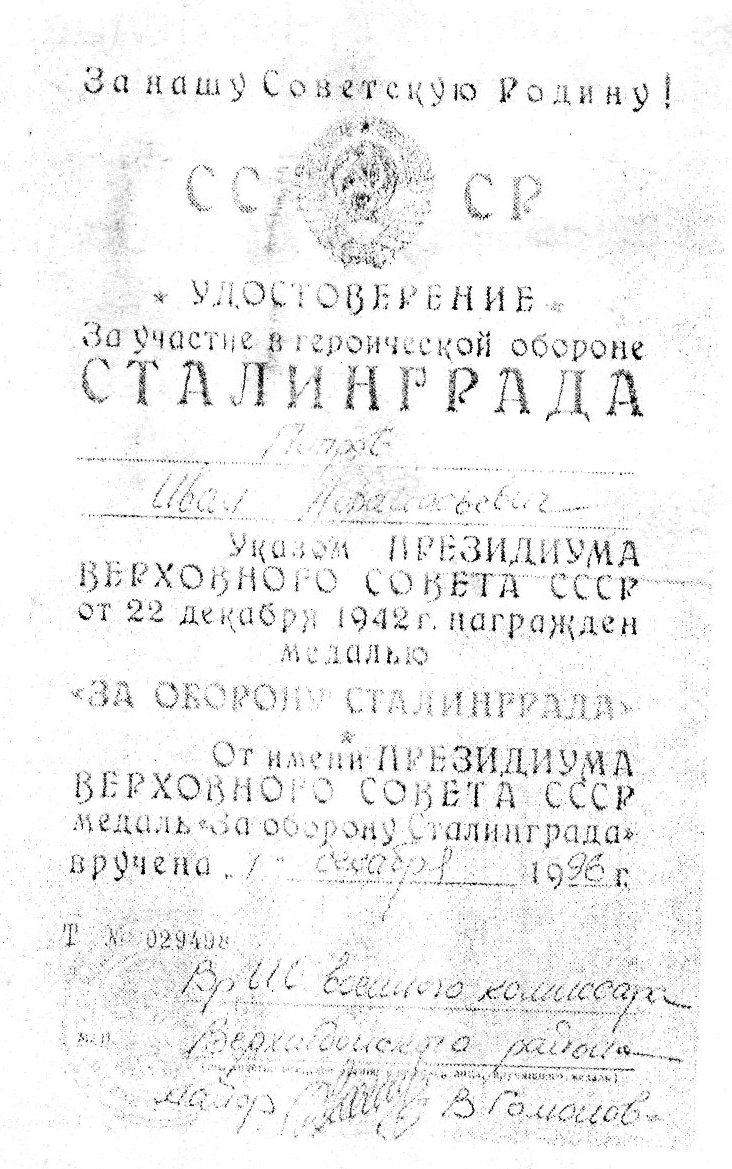 За нашу Советскую Родину!
СС СР
УДОСТОВЕРЕНИЕ
За участие в героической обороне
СТАЛИНГРАДА
Иван Афанасьевич
Указом ПРЕЗИДИУМА
ВЕРХОВНОГО СОВЕТА СССР
от 22 декабря 1942 г. награжден
медалью
«ЗА ОБОРОНУ СТАЛИНГРАДА»
От имени ПРЕЗИДИУМА
ВЕРХОВНОГО СОВЕТА СССР
медаль «За оборону Сталинграда»
вручена „1" декабря 1996 г.
Т № 029498
военного комиссара
района
майор